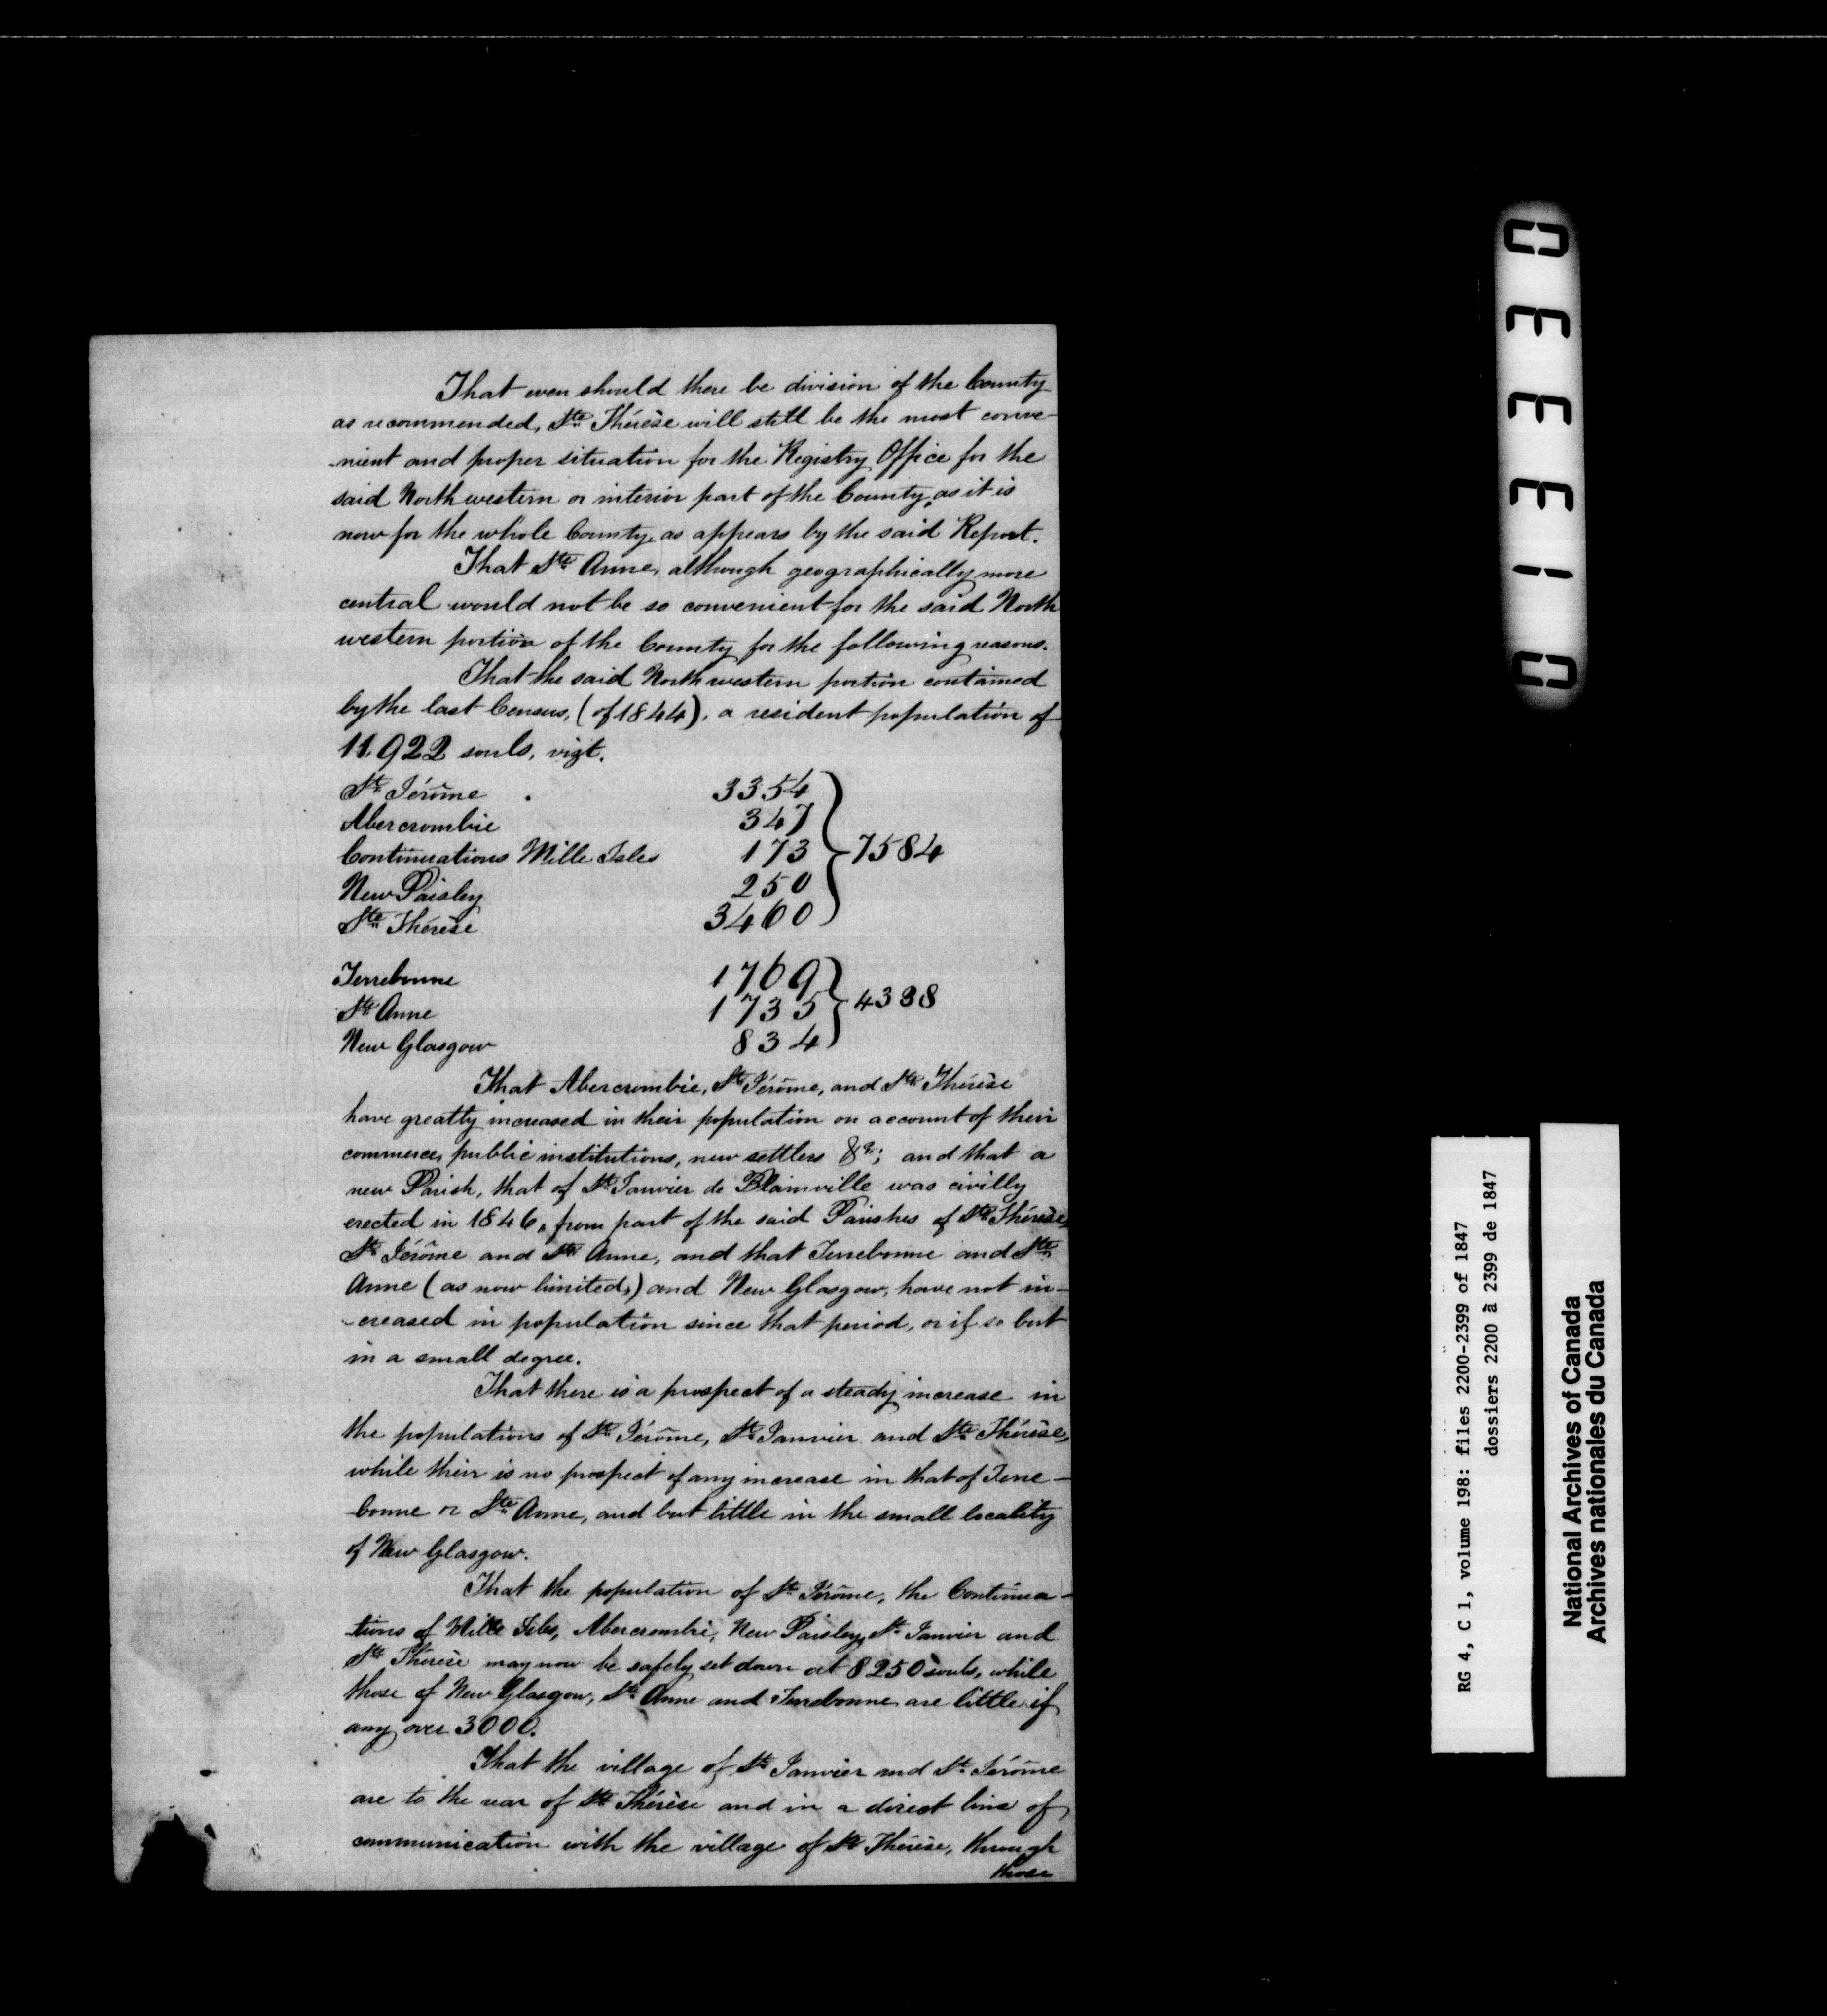 That even should there be division of the County
as recommended, Ste. Thérèse will still be the most conve-
-nient and proper situation for the Registry Office for the
said North western or interior part of the County, as it is
now for the whole County, as appears by the said Report.
That Ste. Anne, although geographically more
central would not be so convenient for the said North
western portion of the County for the following reasons.
That the said North western portion contained
by the last Census, (of 1844), a resident population of
11,922 souls, vizt.
St. Jérôme 3354
Abercrombie 347
Continuations Mille Isles 173 } 7584
New Paisley 250
Ste. Thérèse 3460
Terrebonne 1769
Ste. Anne 1735 } 4338
New Glasgow 834
That Abercrombie, St. Jérôme, and Ste. Thérèse
have greatly increased in their population on account of their
commerce, public institutions, new settlers &c; and that a
new Parish, that of St. Janvier de Blainville was civilly
erected in 1846, from part of the said Parishes of Ste. Thérèse,
St. Jérôme and Ste. Anne, and that Terrebonne and Ste.
Anne (as now limited,) and New Glasgow, have not in-
-creased in population since that period, or if so but
in a small degree.
That there is a prospect of a steady increase in
the populations of St. Jérôme, St. Janvier and Ste. Thérèse,
while their is no prospect of any increase in that of Terre-
bonne or Ste. Anne, and but little in the small locality
of New Glasgow.
That the population of St. Jérôme, the Continua-
-tions of Mille Isles, Abercrombie, New Paisley, St. Janvier and
Ste. Thérèse may now be safely set down at 8250 souls, while
those of New Glasgow, Ste. Anne and Terrebonne are little if
any over 3000.
That the village of St. Janvier and St. Jérôme
are to the rear of Ste. Thérèse and in a direct line of
communication with the village of Ste. Thérèse, through
those
RG 4, C 1, volume 198: files 2200-2399 of 1847
dossiers 2200 à 2399 de 1847
National Archives of Canada
Archives nationales du Canada